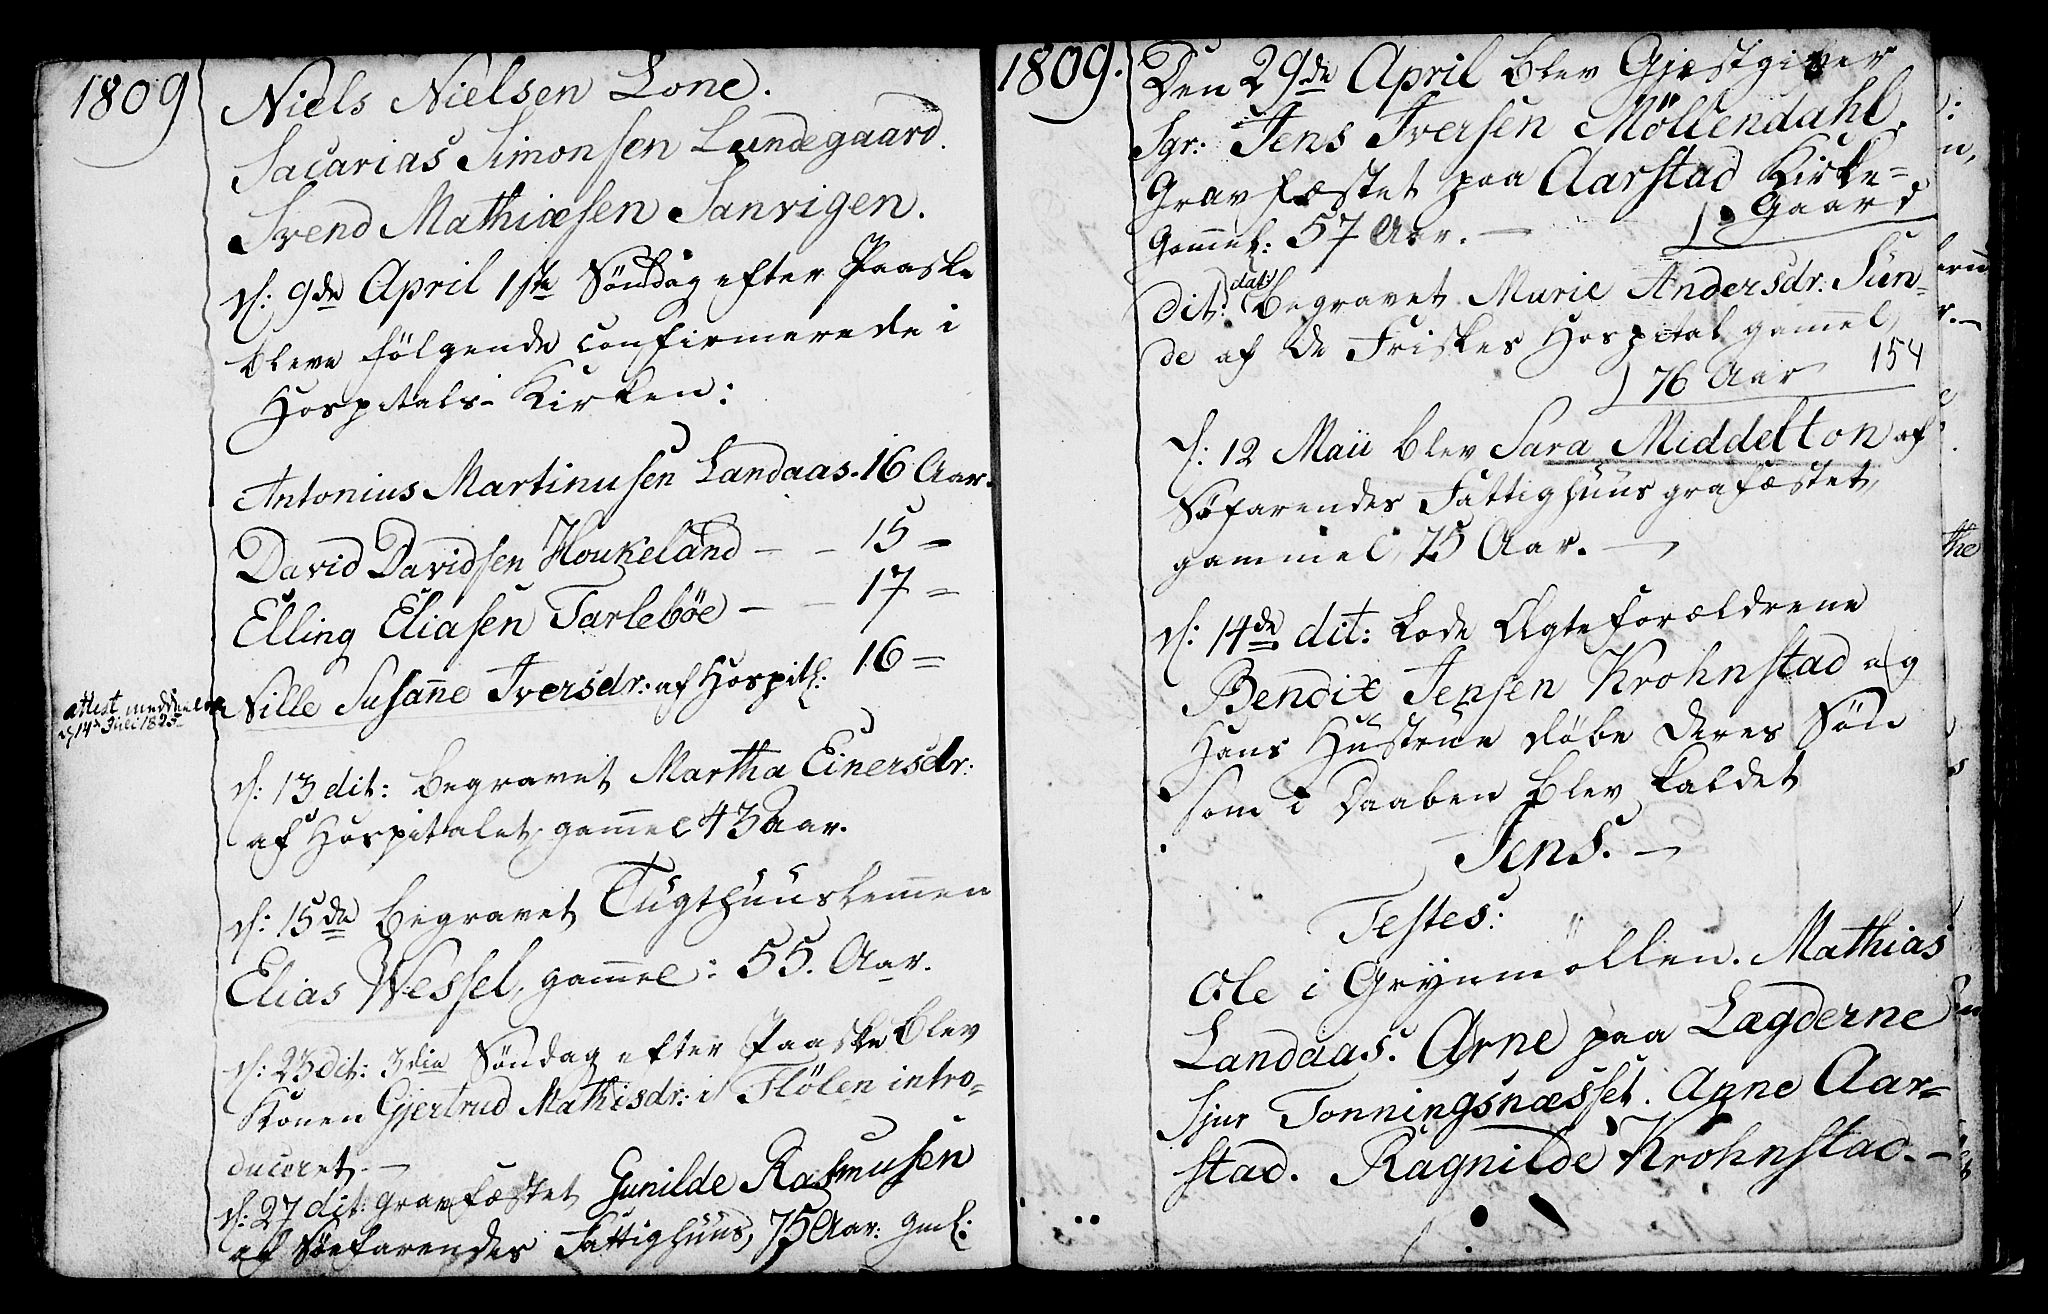 1809
Niels Nielsen Lone.
Sacarias Simonsen Lundegaard.
Svend Mathiæsen Sanvigen.
d: 9de April 1ste Söndag efter Paaske
bleve følgende confirmerede i
Hospitals-Kirken:
Antonius Martinusen Landaas. 16 Aar.
David Davidsen Houkeland - - 15 -
Elling Eliasen Tarlebøe - - 17 -
Nille Susanne Iversdr: af Hospitl: 16 =
attest meddeelt
d 14de Juli 1825
d: 13 dit: begravet Martha Einersdr:
af Hospitalet, gammel 43 Aar.
d: 15de begravet Tugthuuslemmen
Elias Wessel, gammel: 55. Aar.
d: 23 dit: 3die Søndag efter Paaske blev
Konen Gjertrud Mathisdr: i Flölen intro-
duceret. -
d: 27 dit: Gravfæstet Gunilde Rasmusen
af Søefarendes Fattighuus, 75 Aar: gml:
1809.
Den 29de April blev Gjestgiver
Sgr: Jens Iversen Möllendahl
Gravfæstet paa Aarstad Kirke=
Gaard
Gammel: 57 Aar. -
dit: dat: begravet Marie Andersdr: Sun-
de af de Friskes Hospital gammel
76 Aar 154
d: 12 Maii blev Sara Middelton af
Søfarendes Fattighuus grafæstet,
gammel 75 Aar. -
d: 14de dit: Lode Ægteforældrene
Bendix Jensen Krohnstad og
Hans Hustrue døbe deres Søn
som i Daaben blev kaldet
Jens. -
Testes:
Ole i Grÿnmøllen. Mathias
Landaas. Arne paa Lægderne
Sjur Tonningsnæsset. Anne Aar=
stad. Ragnilde Krohnstad. -